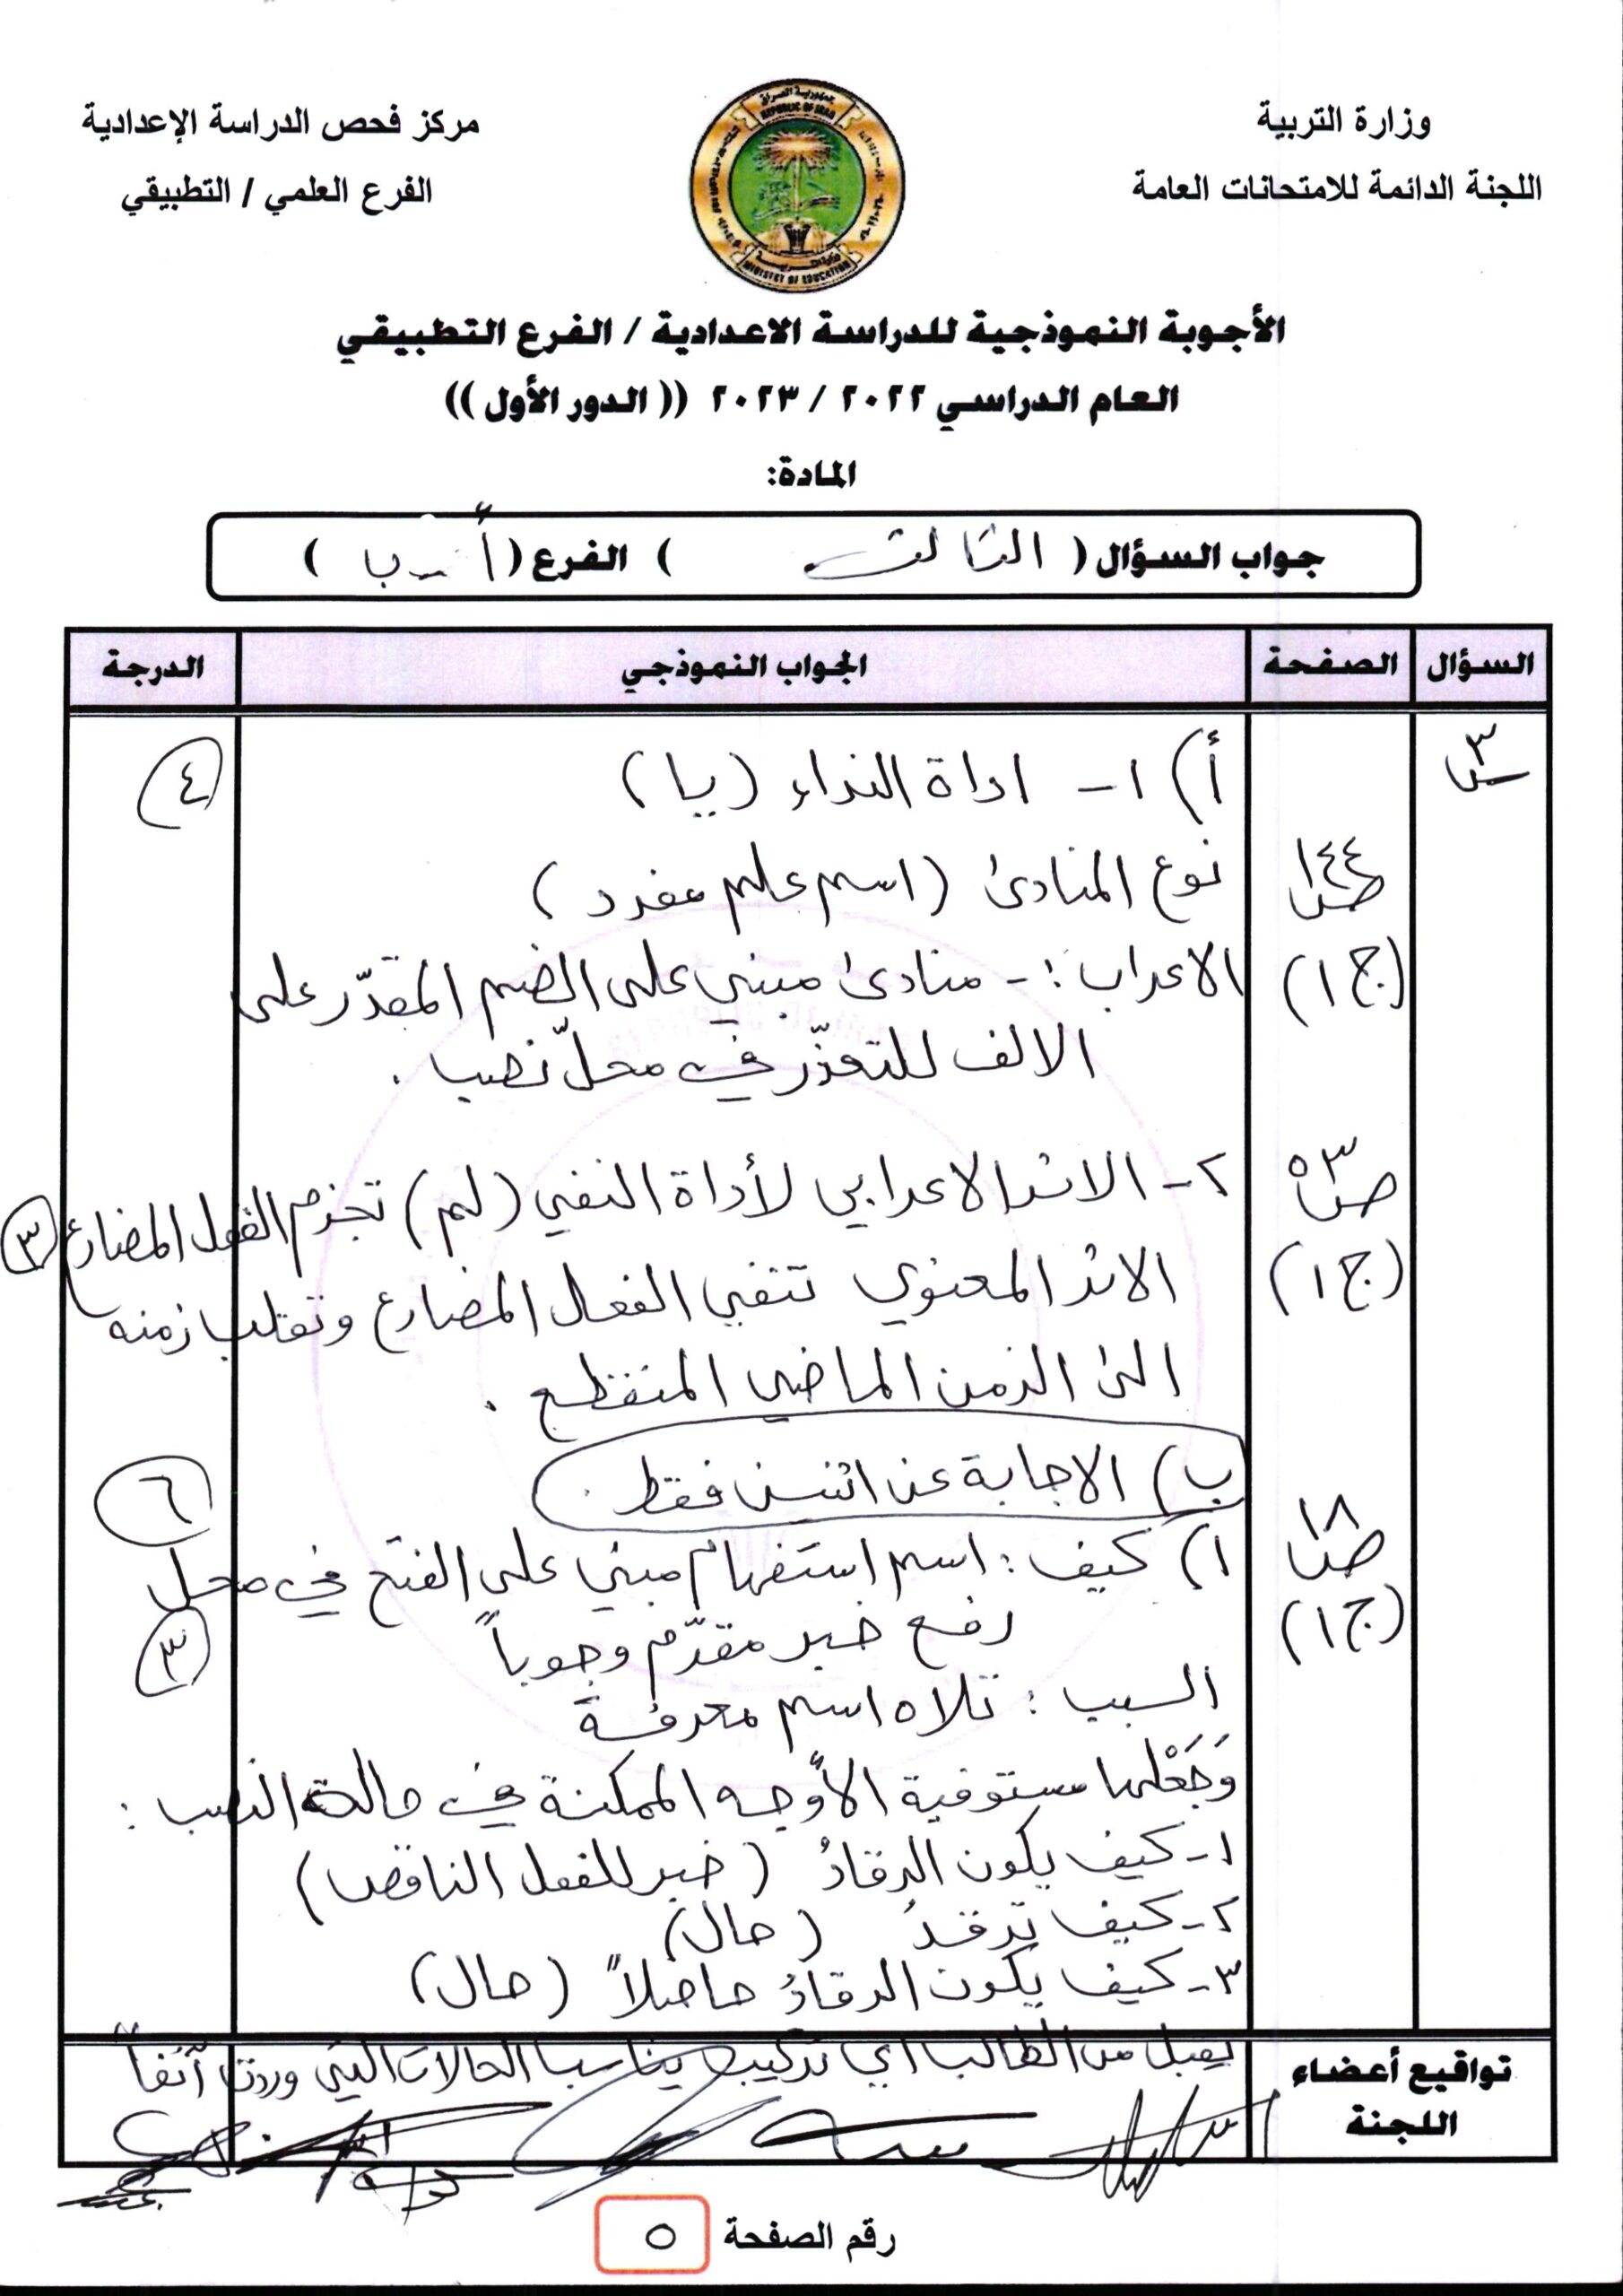 وزارة التربية
اللجنة الدائمة للامتحانات العامة
مركز فحص الدراسة الإعدادية
الفرع العلمي / التطبيقي
جمهورية العراق
REPUBLIC OF IRAQ
MINISTRY OF EDUCATION
الأجوبة النموذجية للدراسة الاعدادية / الفرع التطبيقي
العام الدراسي ٢٠٢٢ / ٢٠٢٣ (( الدور الأول ))
المادة:
جواب السؤال ( الثالث ) الفرع ( أ - ب )
السؤال الصفحة الجواب النموذجي الدرجة
س٣ أ) ١- اداة النداء (يا) ٤
ص١٤٤ نوع المنادىٰ (اسم علم مفرد)
(ج١) الاعراب :- منادىٰ مبني على الضم المقدّر على
الالف للتعذّر في محلّ نصب .
ص٥٣ ٢- الاثر الاعرابي لأداة النفي (لم) تجزم الفعل المضارع ٣
(ج١) الاثر المعنوي تنفي الفعل المضارع وتقلب زمنه
الىٰ الزمن الماضي المنقطع .
ب) الاجابة عن اثنين فقط . ٦
ص١٨ ١) كيف : اسم استفهام مبني على الفتح في محل
(ج١) رفع خبر مقدّم وجوباً ٣
السبب : تلاه اسم معرفة
وَجَعْلها مستوفية الأوجه الممكنة في حالة النصب :
١- كيف يكون الرقادُ (خبر للفعل الناقص)
٢- كيف ترقدُ (حال)
٣- كيف يكون الرقادُ حاصلاً (حال)
يقبل من الطالب اي تركيب يناسب الحالات التي وردت آنفاً
تواقيع أعضاء
اللجنة
رقم الصفحة ٥